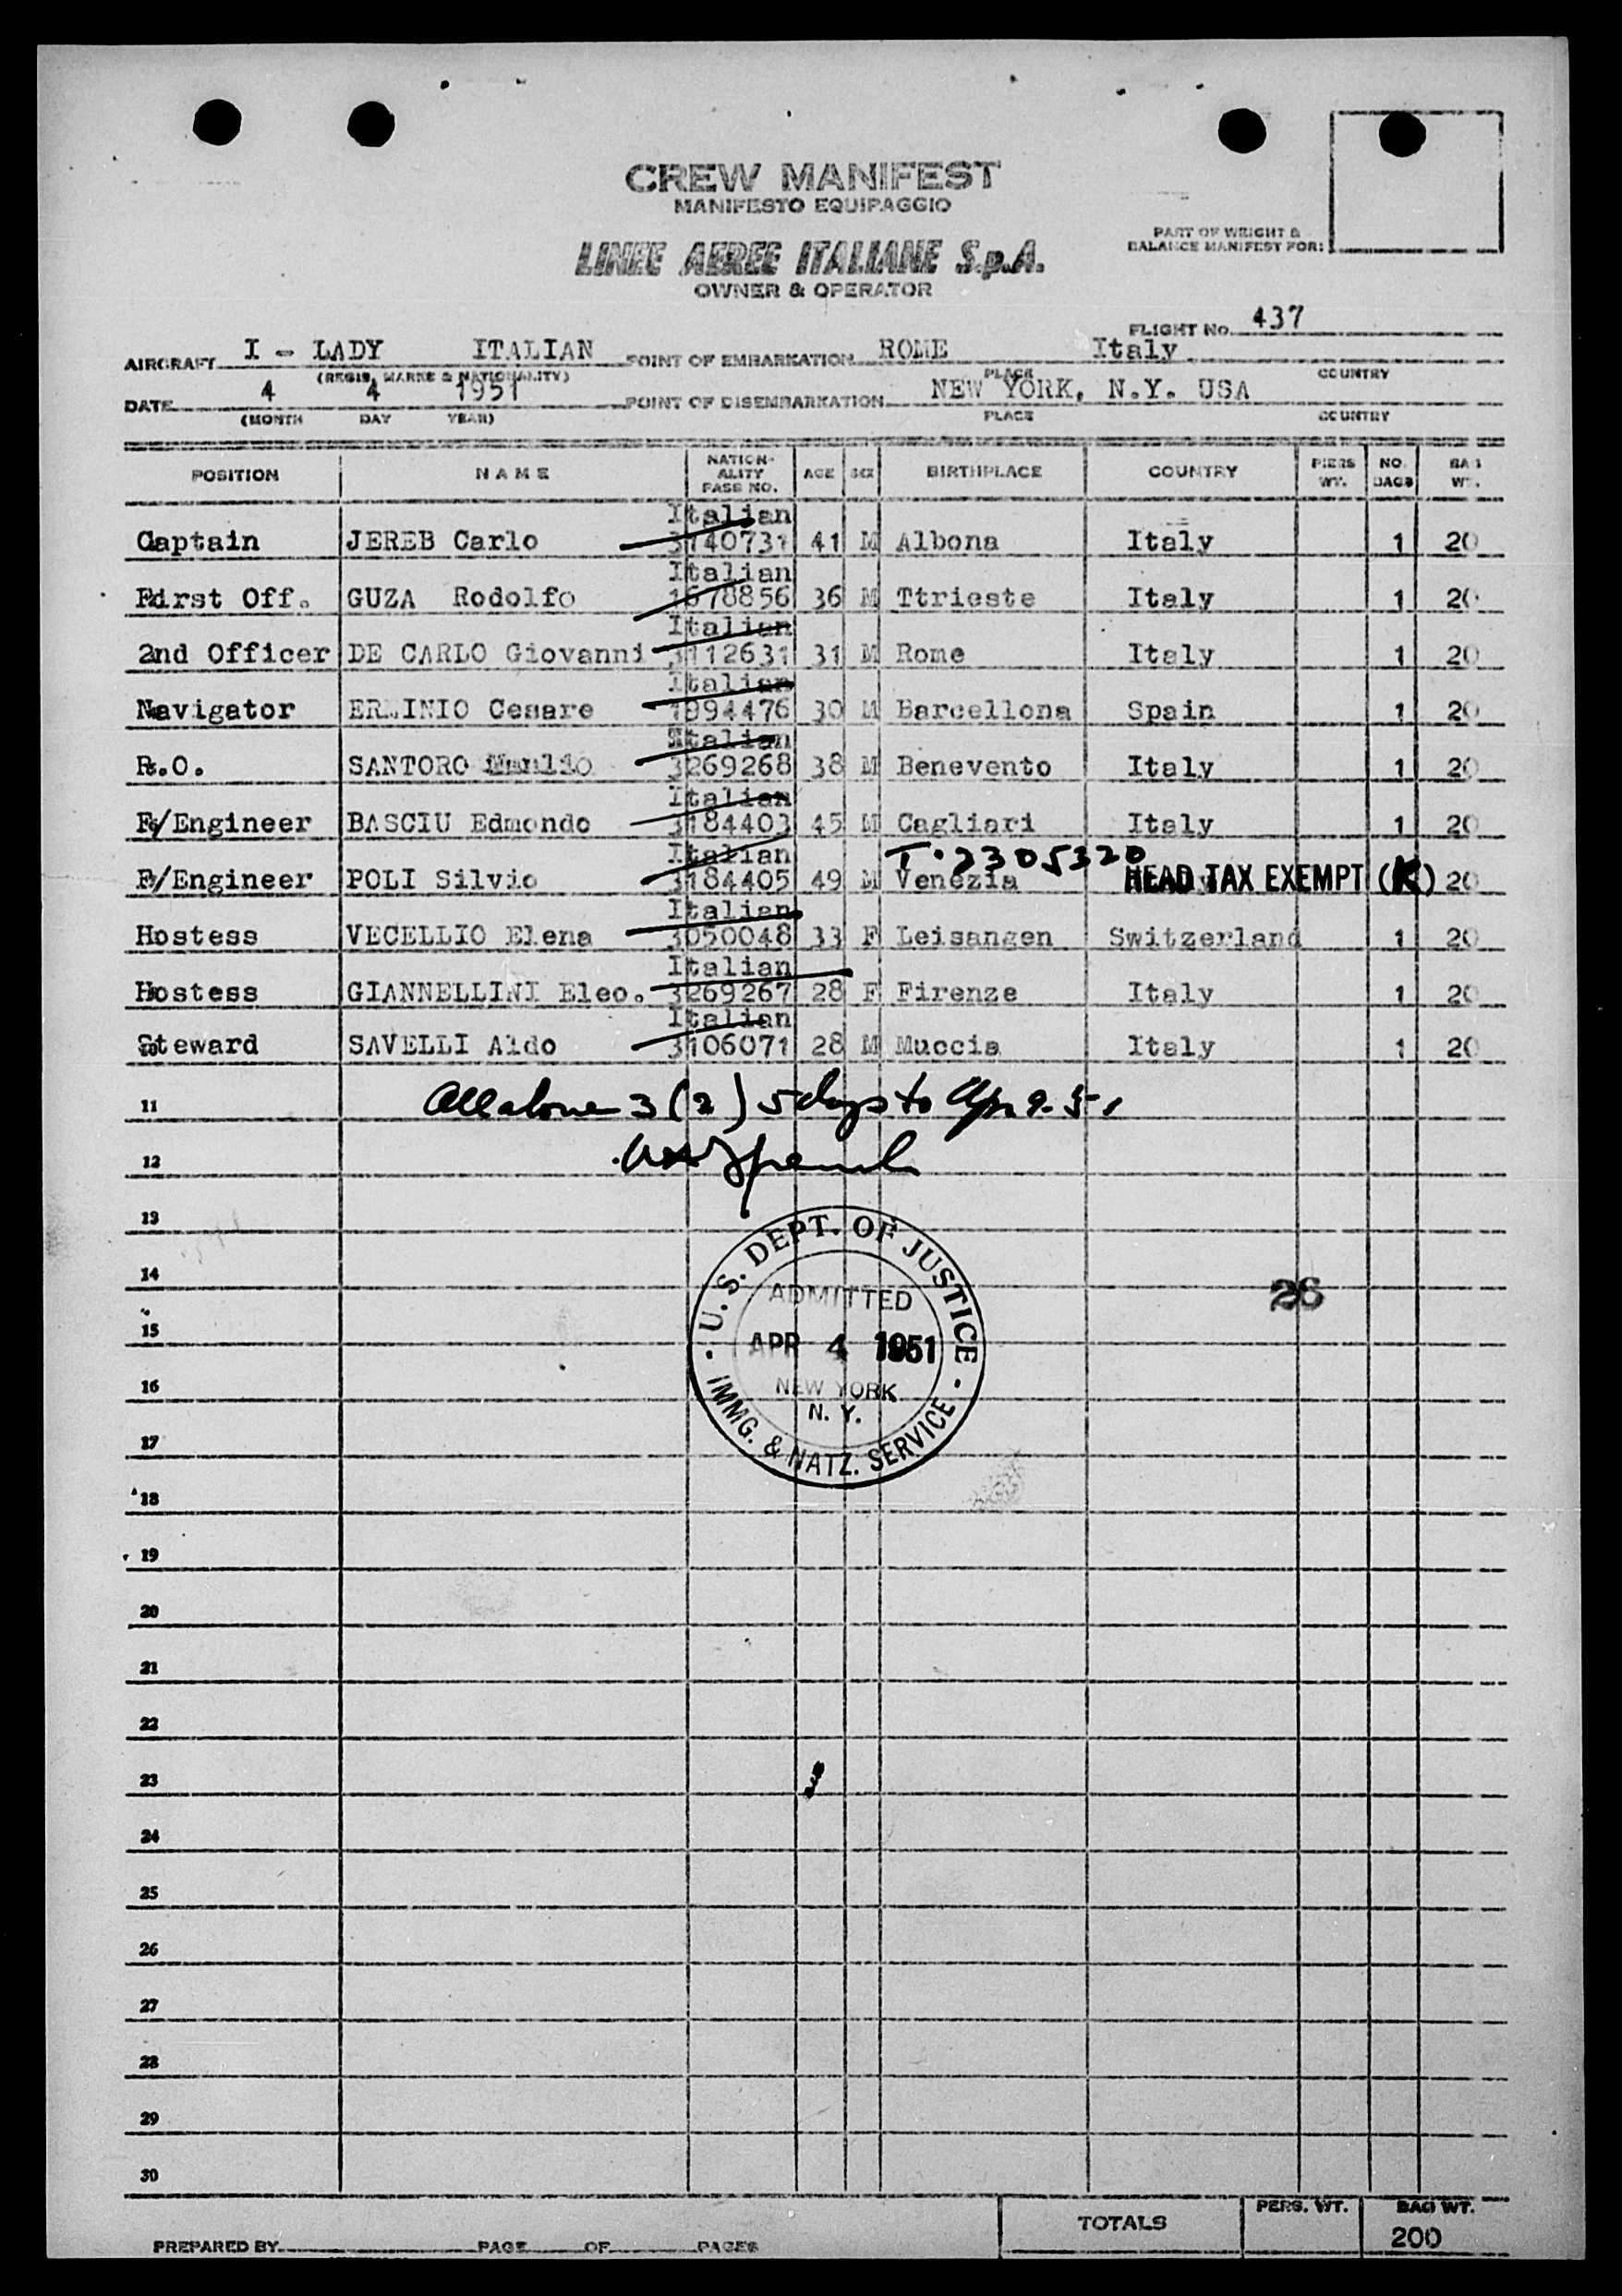 CREW MANIFEST
MANIFESTO EQUIPAGGIO
PART OF WEIGHT &
BALANCE MANIFEST FOR:
LINEE AEREE ITALIANE S.p.A.
OWNER & OPERATOR
FLIGHT No. 437
AIRCRAFT I - LADY ITALIAN POINT OF EMBARKATION ROME Italy
(REGIS, MARKS & NATIONALITY) PLACE COUNTRY
DATE 4 4 1951 POINT OF DISEMBARKATION NEW YORK, N.Y. USA
(MONTH DAY YEAR) PLACE COUNTRY
POSITION NAME NATION-ALITY PASS NO. AGE SEX BIRTHPLACE COUNTRY PIERS WT. NO. BAGS BAG WT.
Italian
Captain JEREB Carlo 3140731 41 M Albona Italy 1 20
Italian
First Off. GUZA Rodolfo 1678856 36 M Ttrieste Italy 1 20
Italian
2nd Officer DE CARLO Giovanni 3112631 31 M Rome Italy 1 20
Italian
Navigator Cesare 1994476 30 M Barcellona Spain 1 20
Italian
R.O. SANTORO Manlio 3269268 38 M Benevento Italy 1 20
Italian
F/Engineer BASCIU Edmondo 3184403 45 M Cagliari Italy 1 20
Italian T.2305320
F/Engineer POLI Silvio 3184405 49 M Venezia HEAD TAX EXEMPT (K) 20
Italian
Hostess VECELLIO Elena 3050048 33 F Leisangen Switzerland 1 20
Italian
Hostess GIANNELLINI Eleo. 3269267 28 F Firenze Italy 1 20
Italian
Steward SAVELLI Aldo 3106071 28 M Muccia Italy 1 20
11 All above 3 (2) 5 days to Apr 9-51
12
13
U.S. DEPT. OF JUSTICE
14 ADMITTED 26
15 APR 4 1951
16 NEW YORK
N. Y.
17 IMMG. & NATZ. SERVICE
18
19
20
21
22
23
24
25
26
27
28
29
30
TOTALS PERS. WT. BAG WT.
200
PREPARED BY PAGE OF PAGES